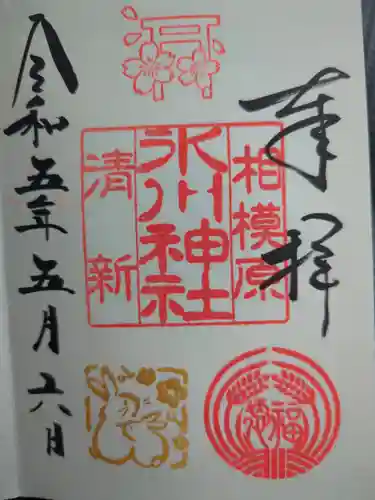 奉拝
相模原
氷川神社
清新
令和五年五月六日
福